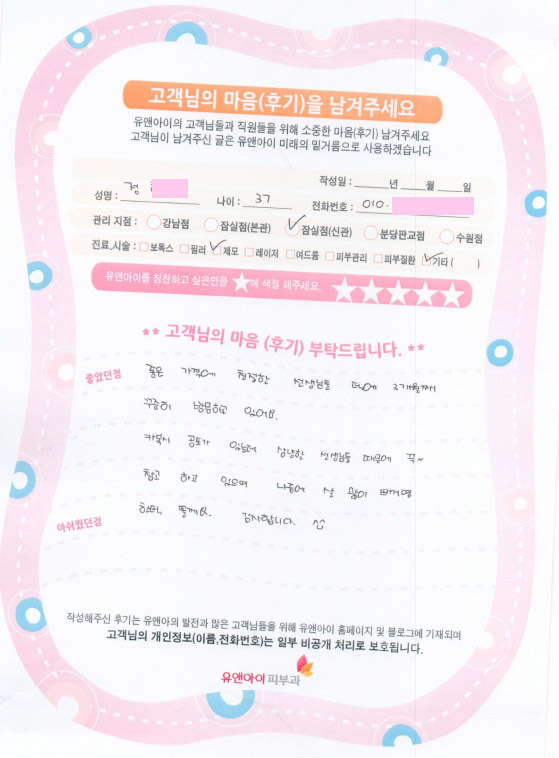 고객님의 마음(후기)을 남겨주세요
유앤아이의 고객님들과 직원들을 위해 소중한 마음(후기) 남겨주세요
고객님이 남겨주신 글은 유앤아이 미래의 밑거름으로 사용하겠습니다
작성일 : 년 월 일
성명 : 정 나이 : 37 전화번호 : 010-
관리 지점 : 강남점 잠실점(본관) 잠실점(신관) 분당판교점 수원점
진료,시술 : 보톡스 필러 제모 레이저 여드름 피부관리 피부질환 기타 ( )
유앤아이를 칭찬하고 싶은만큼 ★에 색칠 해주세요. ★★★★★
** 고객님의 마음 (후기) 부탁드립니다. **
좋았던점
좋은 가격에 친절한 선생님들 덕에 2개월째
꾸준히 방문하고 있어요.
키복시 공포가 있는데 상냥한 선생님들 때문에 꾹~
참고 하고 있으며 나중에 살 많이 빠지면
한턱, 쏠게요. 감사합니다.
아쉬웠던점
작성해주신 후기는 유앤아의 발전과 많은 고객님들을 위해 유앤아이 홈페이지 및 블로그에 기재되며
고객님의 개인정보(이름,전화번호)는 일부 비공개 처리로 보호됩니다.
유앤아이 피부과